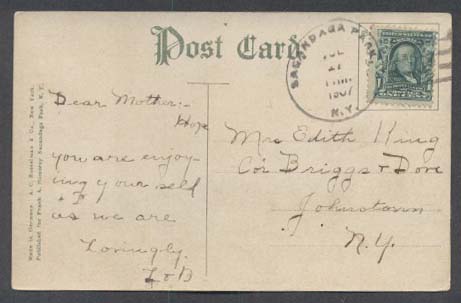 Post Card
SACANDAGA PARK
JUL
17
1907
N.Y.
Made in Germany. A. C. Bosselman & Co., New York.
Published for Frank A. Sacandaga Park, N. Y.
Dear Mother:-
Hope
you are enjoy-
ing your self
as we are
Lovingly
Mrs Edith King
Cor Briggs + Dove
Johnstown
N.Y.